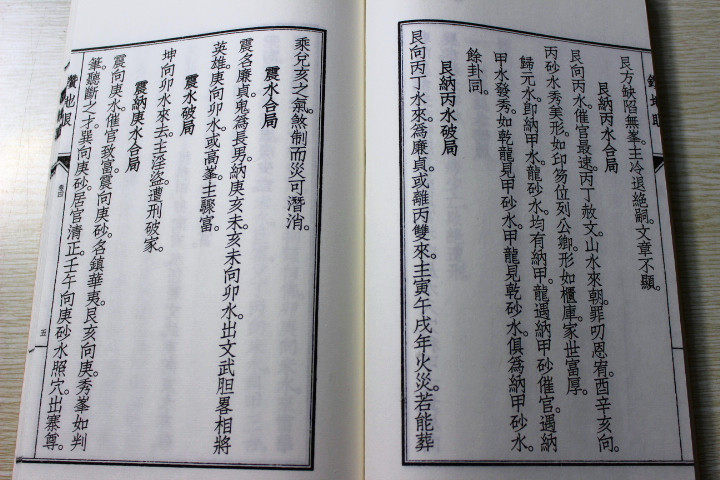 鐵地眼
艮方缺陷無峯主冷退絕嗣文章不顯。
艮納丙水合局
艮向丙水催官最速丙丁赦文山水來朝罪叨恩宥酉辛亥向。
丙砂水秀美形如印笏位列公卿形如櫃庫家世富厚。
歸元水即納甲水龍砂水均有納甲龍遇納甲砂催官遇納
甲水發秀如乾龍見甲砂水甲龍見乾砂水俱爲納甲砂水。
餘卦同。
艮納丙水破局
艮向丙丁水來爲廉貞或離丙雙來主寅午戌年火災若能葬
乘兌亥之氣煞制而災可潛消。
震水合局
震名廉貞鬼爲長男納庚亥未亥未向卯水出文武胆畧相將
英雄庚向卯水或高峯主驟富。
震水破局
坤向卯水來去主淫盜遭刑破家。
震納庚水合局
震向庚水催官致富震向庚砂名鎮華夷艮亥向庚秀峯如判
筆聽斷之才巽向庚砂居官清正壬午向庚砂水照穴出寨尊。
鐵地眼
卷四
五